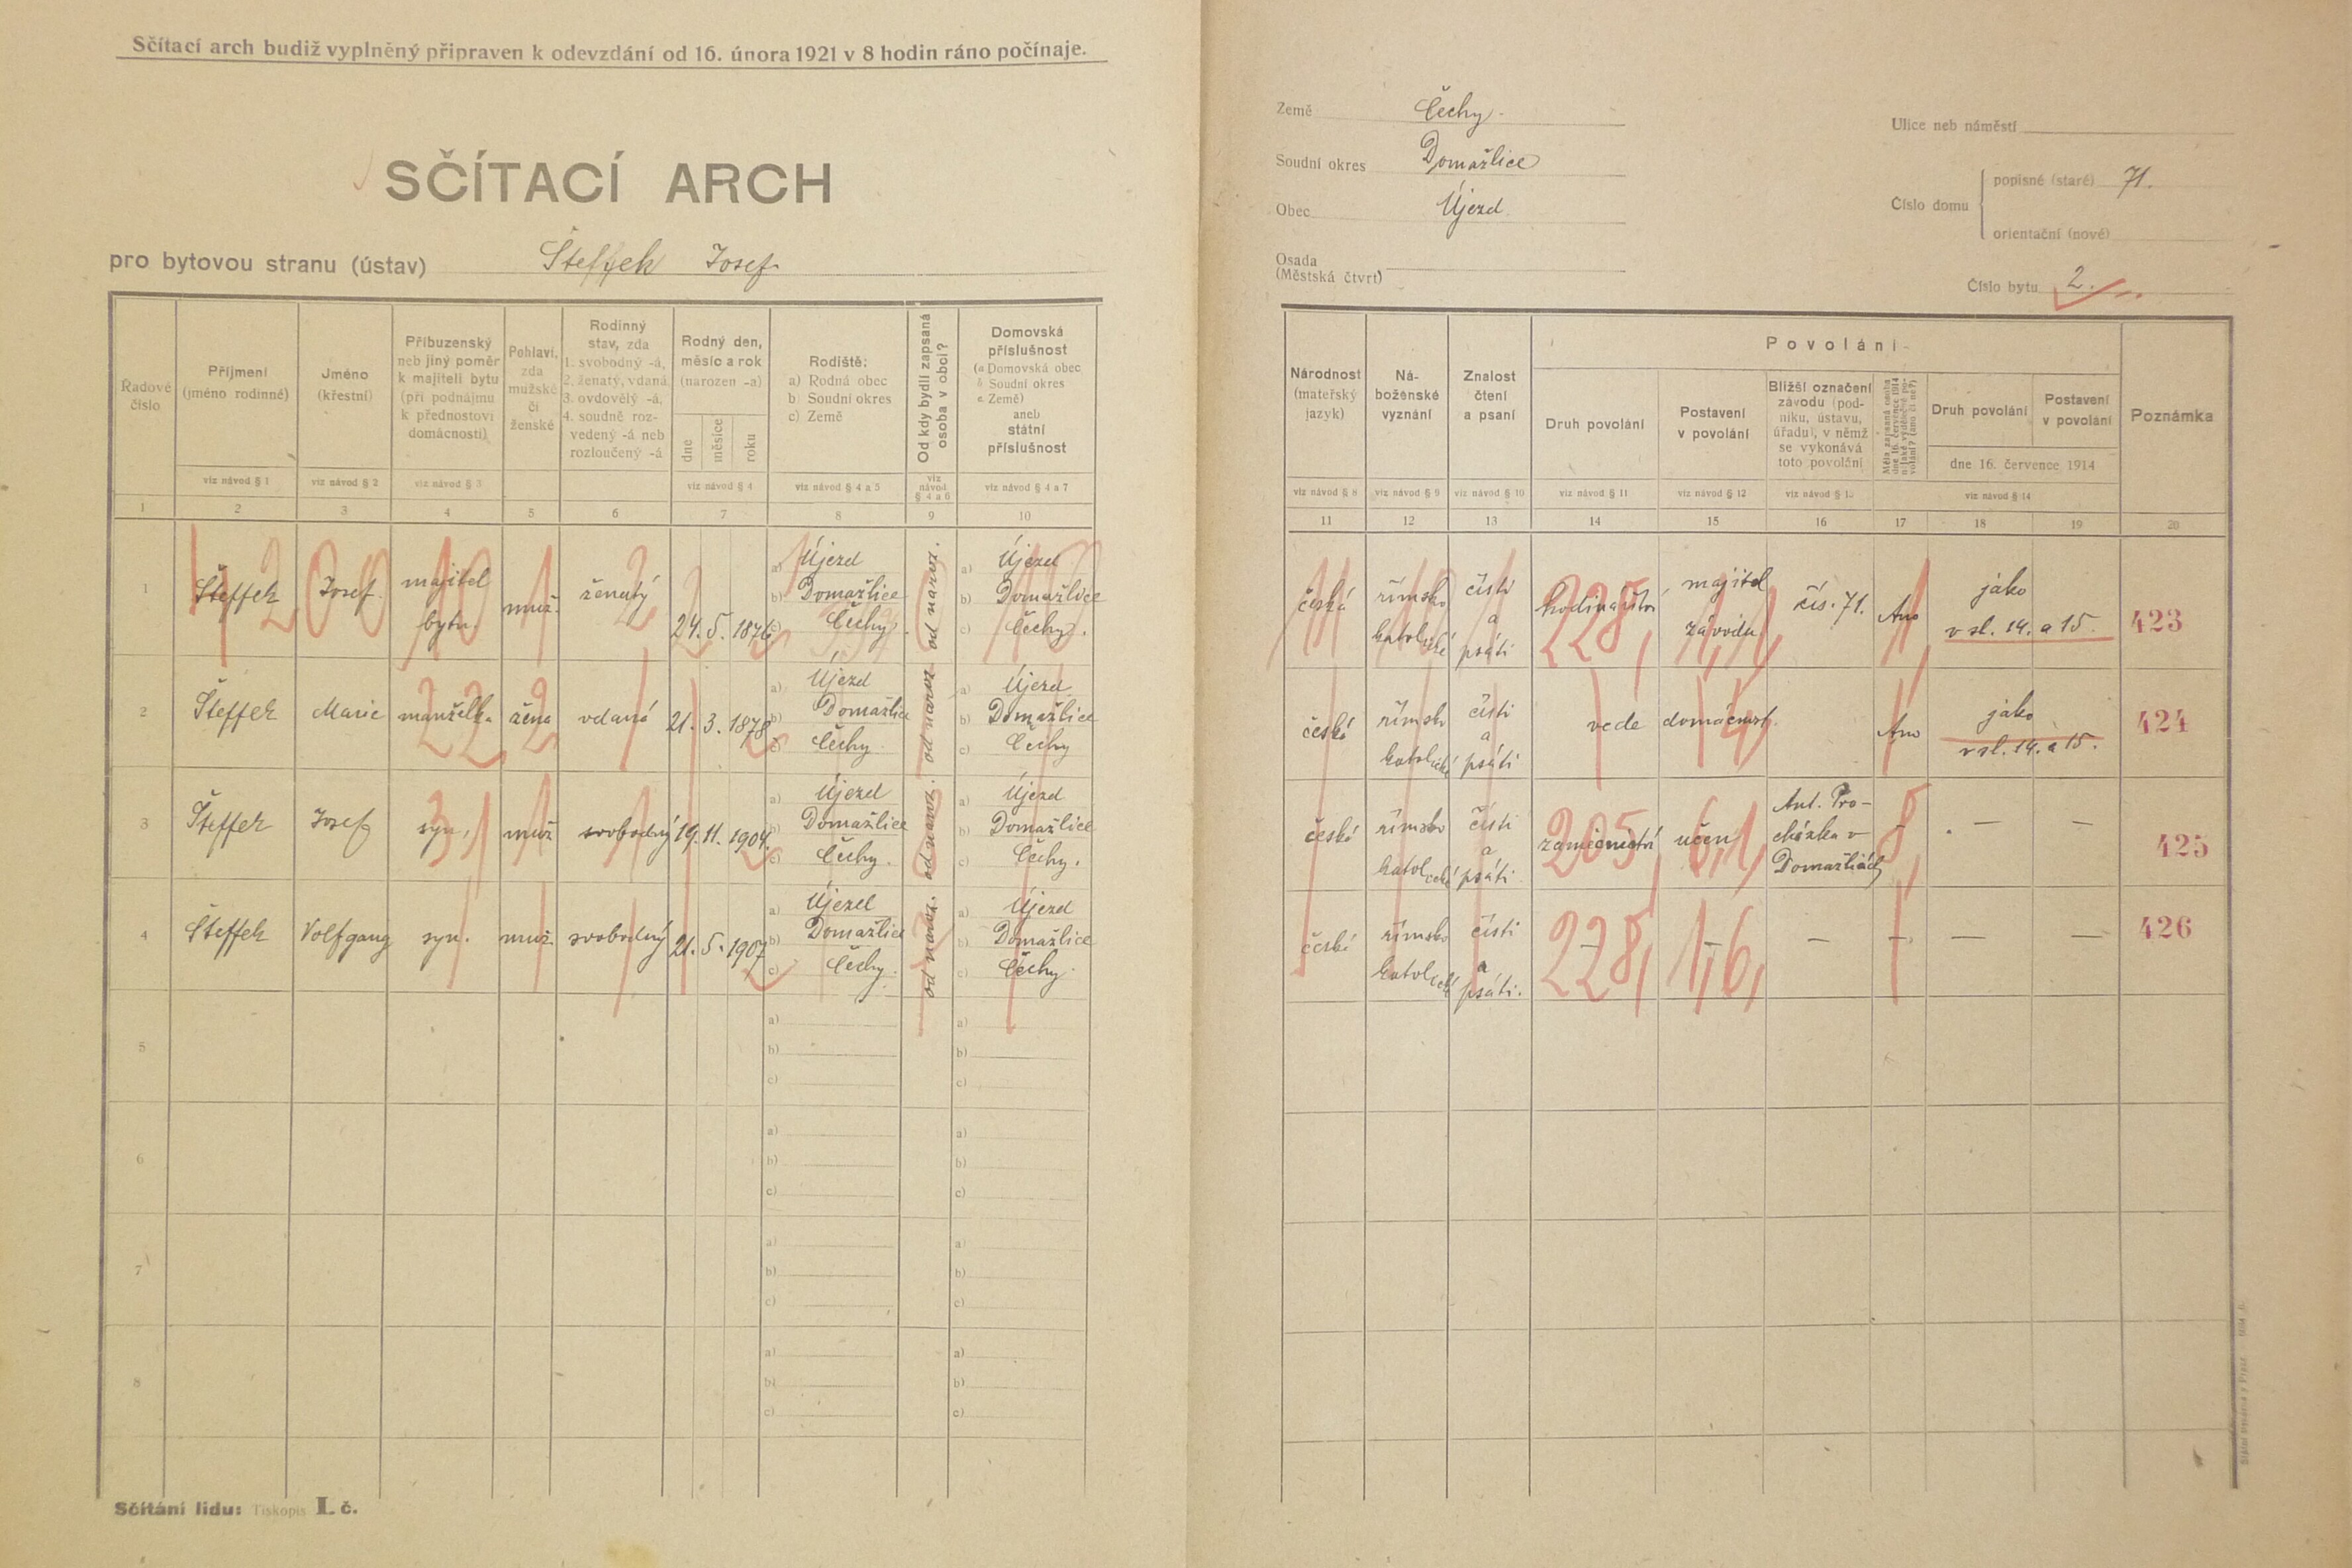 Sčítací arch budiž vyplněný připraven k odevzdání od 16. února 1921 v 8 hodin ráno počínaje.
SČÍTACÍ ARCH
pro bytovou stranu (ústav) Šteffek Josef
Řadové číslo
Příjmení (jméno rodinné)
Jméno (křestní)
Příbuzenský neb jiný poměr k majiteli bytu (při podnájmu k přednostovi domácnosti)
Pohlaví, zda mužské či ženské
Rodinný stav, zda 1. svobodný -á, 2. ženatý, vdaná 3. ovdovělý -á, 4. soudně rozvedený -á neb rozloučený -á
Rodný den, měsíc a rok (narozen -a)
dne měsíce roku
Rodiště: a) Rodná obec b) Soudní okres c) Země
Od kdy bydlí zapsaná osoba v obci?
Domovská příslušnost (a Domovská obec b Soudní okres c Země) aneb státní příslušnost
viz návod § 1 viz návod § 2 viz návod § 3 viz návod § 4 viz návod § 4 a 5 viz návod § 4 a 6 viz návod § 4 a 7
1 2 3 4 5 6 7 8 9 10
1 Šteffek Josef majitel bytu. muž. ženatý 24. 5. 1876 a) Újezd b) Domažlice c) Čechy. od naroz. a) Újezd b) Domažlice c) Čechy.
2 Šteffek Marie manželka žena vdaná 21. 3. 1878 a) Újezd b) Domažlice c) Čechy od naroz. a) Újezd b) Domažlice c) Čechy
3 Šteffek Josef syn, muž svobodný 19. 11. 1904. a) Újezd b) Domažlice c) Čechy. od naroz. a) Újezd b) Domažlice c) Čechy.
4 Šteffek Volfgang syn. muž. svobodný 21. 5. 1907 a) Újezd b) Domažlice c) Čechy. od naroz. a) Újezd b) Domažlice c) Čechy.
5 a) b) c) a) b) c)
6 a) b) c) a) b) c)
7 a) b) c) a) b) c)
8 a) b) c) a) b) c)
Sčítání lidu: Tiskopis I. č.
Země Čechy.
Soudní okres Domažlice
Obec Újezd
Osada (Městská čtvrť)
Ulice neb náměstí
Číslo domu
popisné (staré) 71.
orientační (nové)
Číslo bytu 2.
Národnost (mateřský jazyk)
Náboženské vyznání
Znalost čtení a psaní
Povolání
Druh povolání
Postavení v povolání
Bližší označení závodu (podniku, ústavu, úřadu), v němž se vykonává toto povolání
Druh povolání
Postavení v povolání
dne 16. července 1914
Poznámka
viz návod § 8 viz návod § 9 viz návod § 10 viz návod § 11 viz návod § 12 viz návod § 13 viz návod § 14
11 12 13 14 15 16 17 18 19 20
česká římsko katolické čísti a psáti hodinářství 228, majitel závodu čís. 71. Ano jako v sl. 14. a 15. 423
česká římsko katolické čísti a psáti vede domácnost. Ano jako v sl. 14. a 15. 424
česká římsko katolické čísti a psáti zámečnictví 205, učen 6,1, Ant. Procházka v Domažlicích — — 425
česká římsko katolické čísti a psáti. 228, 1,6, — — — — 426